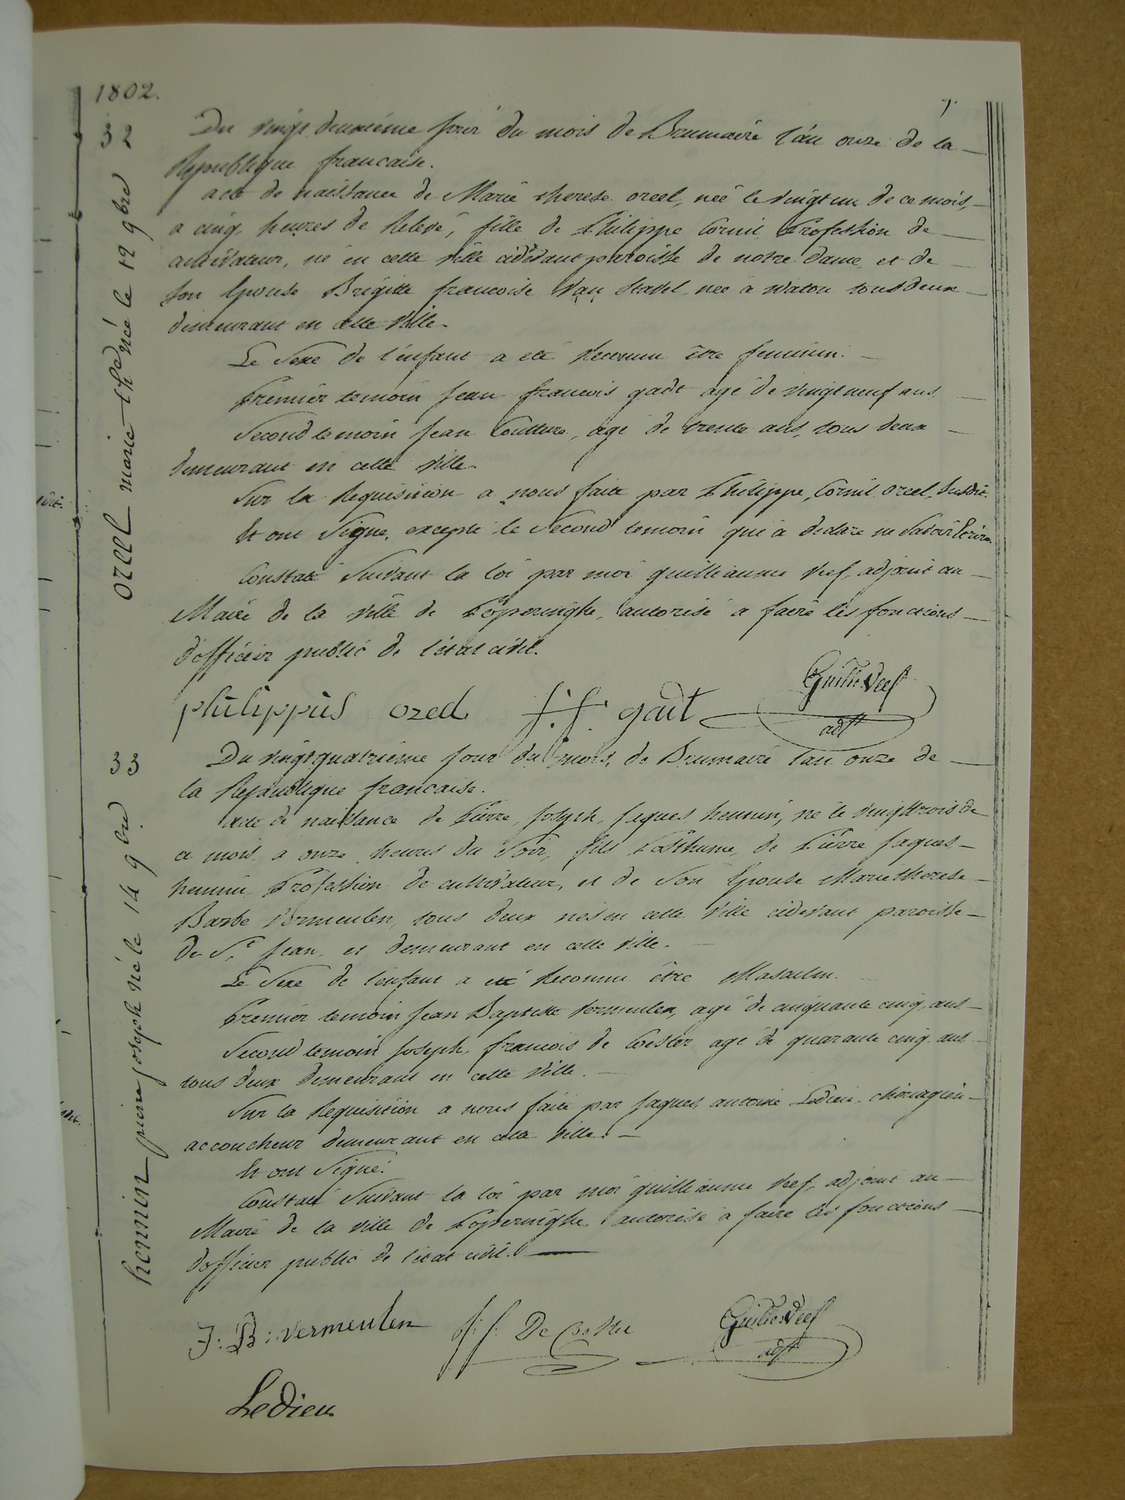 1802.
7.
32
Du vingt deuxiéme jour du mois de Brumaire l'an onze de la
Republique francaise.
acte de naissance de Marie therese orcel, neé le vingt un de ce mois,
a cinq heures de Relevé, fille de Philippe Cornil Profession de
cultivateur, né en cette ville cidevant paroisse de notre dame et de
son Epouse Brigitte francoise Van Stavel neé a Watou tous deux
demeurant en cette ville.
Le Sexe de l'enfant a eté Reconnu être feminin.
Premier temoin Jean francois gadt agé de vingt neuf ans
Second temoin Jean Couttere, agé de trente ans, tous deux
demeurant en cette ville.
Sur la Requisition a nous faite par Philippe Cornil orcel, Susdit.
Et ont Signe, excepté le Second temoin qui a declare ne Savoir Ecrire.
Constaté Suivant la loi par moi guilleaume Vef, adjoint au
Maire de la ville de Poperinghe, autorisé a faire les fonctions
d'officier public de l'état civil.
orcel marie thed née le 12 9bre
philippus orcel J. f. gadt Guille Veef
adjt
33
Du vingt quatriéme jour du mois, de Brumaire l'an onze de
la Republique francaise.
acte de naissance de Pierre Joseph Jaques hennin, né le vingt trois de
ce mois a onze heures du Soir, fils Posthume, de Pierre Jaques
hennin Profession de cultivateur, et de Son Epouse Marie therese
Barbe Vermeulen, tous deux nés en cette ville cidevant paroisse
De St Jean, et demeurant en cette ville.
Le Sexe de l'enfant a eté Reconnu être Masculin.
Premier temoin Jean Baptiste Vermeulen, agé de cinquante cinq ans
Second temoin Joseph francois de Coester agé de quarante cinq ans
tous deux demeurant en cette ville.
Sur la Requisition a nous faite par Jaques antoine Ledieu chirurgien
accoucheur demeurant en cette ville.
Et ont Signé.
Constaté Suivant la loi par moi guilleaume Vef, adjoint au
Maire de la ville de Poperinghe autorisé a faire les fonctions
d'officier public de l'état civil.
hennin pierre joseph né le 14 9bre
J: B: vermeulen J: f: De Coester Guille Veef
adjt
Ledieu